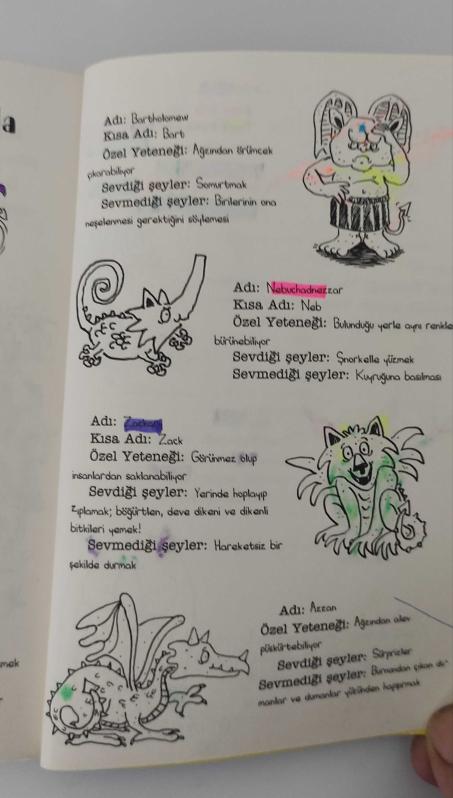 a
Adı: Bartholomew
Kısa Adı: Bart
Özel Yeteneği: Ağzından örümcek
çıkarabiliyor
Sevdiği şeyler: Somurtmak
Sevmediği şeyler: Birilerinin ona
neşelenmesi gerektiğini söylemesi
Adı: Nebuchadnezzar
Kısa Adı: Neb
Özel Yeteneği: Bulunduğu yerle aynı renkle
bürünebiliyor
Sevdiği şeyler: Şnorkelle yüzmek
Sevmediği şeyler: Kuyruğuna basılması
Adı:
Kısa Adı: Zack
Özel Yeteneği: Görünmez olup
insanlardan saklanabiliyor
Sevdiği şeyler: Yerinde hoplayıp
zıplamak; böğürtlen, deve dikeni ve dikenli
bitkileri yemek!
Sevmediği şeyler: Hareketsiz bir
şekilde durmak
Adı: Azzan
Özel Yeteneği: Ağzından alev
püskürtebiliyor
Sevdiği şeyler: Sürprizler
Sevmediği şeyler: Burnundan çıkan du-
manlar ve dumanlar yüzünden hapşırmak
mek